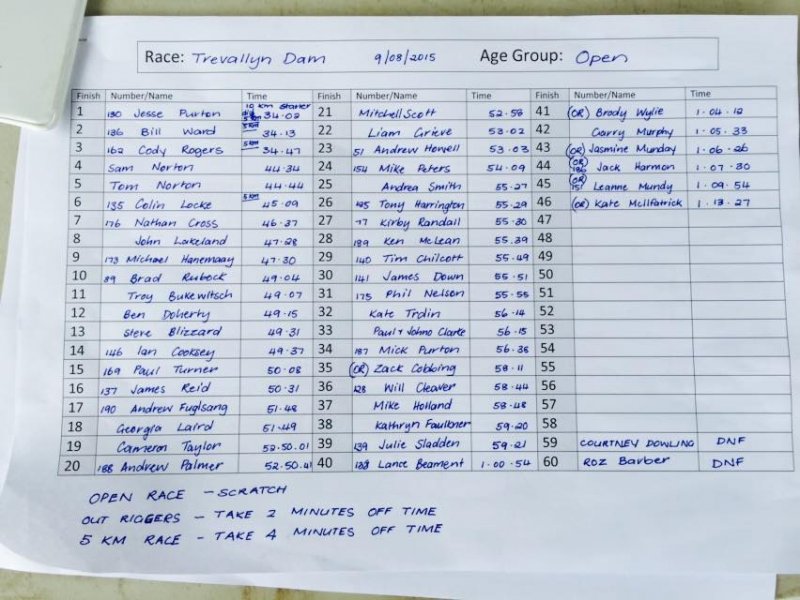 Race: Trevallyn Dam 9/08/2015 Age Group: Open
Finish Number/Name Time Finish Number/Name Time Finish Number/Name Time
10 km starter
1 130 Jesse Purton 34.02 21 Mitchell Scott 52.58 41 (OR) Brody Wylie 1.04.12
2 136 Bill Ward 5km 34.13 22 Liam Grieve 53.02 42 Garry Murphy 1.05.33
3 162 Cody Rogers 5km 34.47 23 51 Andrew Howell 53.03 43 (OR) Jasmine Munday 1.06.26
4 Sam Norton 44.34 24 154 Mike Peters 54.09 44 (OR) 186 Jack Harmon 1.07.30
5 Tom Norton 44.44 25 Andrea Smith 55.27 45 (OR) 151 Leanne Mundy 1.09.54
6 135 Colin Locke 5km 45.09 26 Tony Harrington 55.29 46 (OR) Kate McIlfatrick 1.13.27
7 176 Nathan Cross 46.37 27 Kirby Randall 55.30 47
8 John Lakeland 47.28 28 189 Ken McLean 55.39 48
9 173 Michael Hanemaay 47.30 29 140 Tim Chilcott 55.49 49
10 89 Brad Rubock 49.04 30 141 James Down 55.51 50
11 Troy Bukewitsch 49.07 31 175 Phil Nelson 55.55 51
12 Ben Doherty 49.15 32 Kate Trdin 56.14 52
13 Steve Blizzard 49.31 33 Paul + Johno Clarke 56.15 53
14 146 Ian Cooksey 49.37 34 187 Mick Purton 56.38 54
15 169 Paul Turner 50.08 35 (OR) Zack Cobbing 58.11 55
16 137 James Reid 50.31 36 128 Will Cleaver 58.44 56
17 190 Andrew Fuglsang 51.48 37 Mike Holland 58.48 57
18 Georgia Laird 51.49 38 Kathryn Faulkner 59.20 58
19 Cameron Taylor 52.50.01 39 139 Julie Sladden 59.21 59 COURTNEY DOWLING DNF
20 188 Andrew Palmer 52.50.41 40 Lance Beament 1.00.54 60 ROZ Barber DNF
OPEN RACE - SCRATCH
OUT RIGGERS - TAKE 2 MINUTES OFF TIME
5 KM RACE - TAKE 4 MINUTES OFF TIME